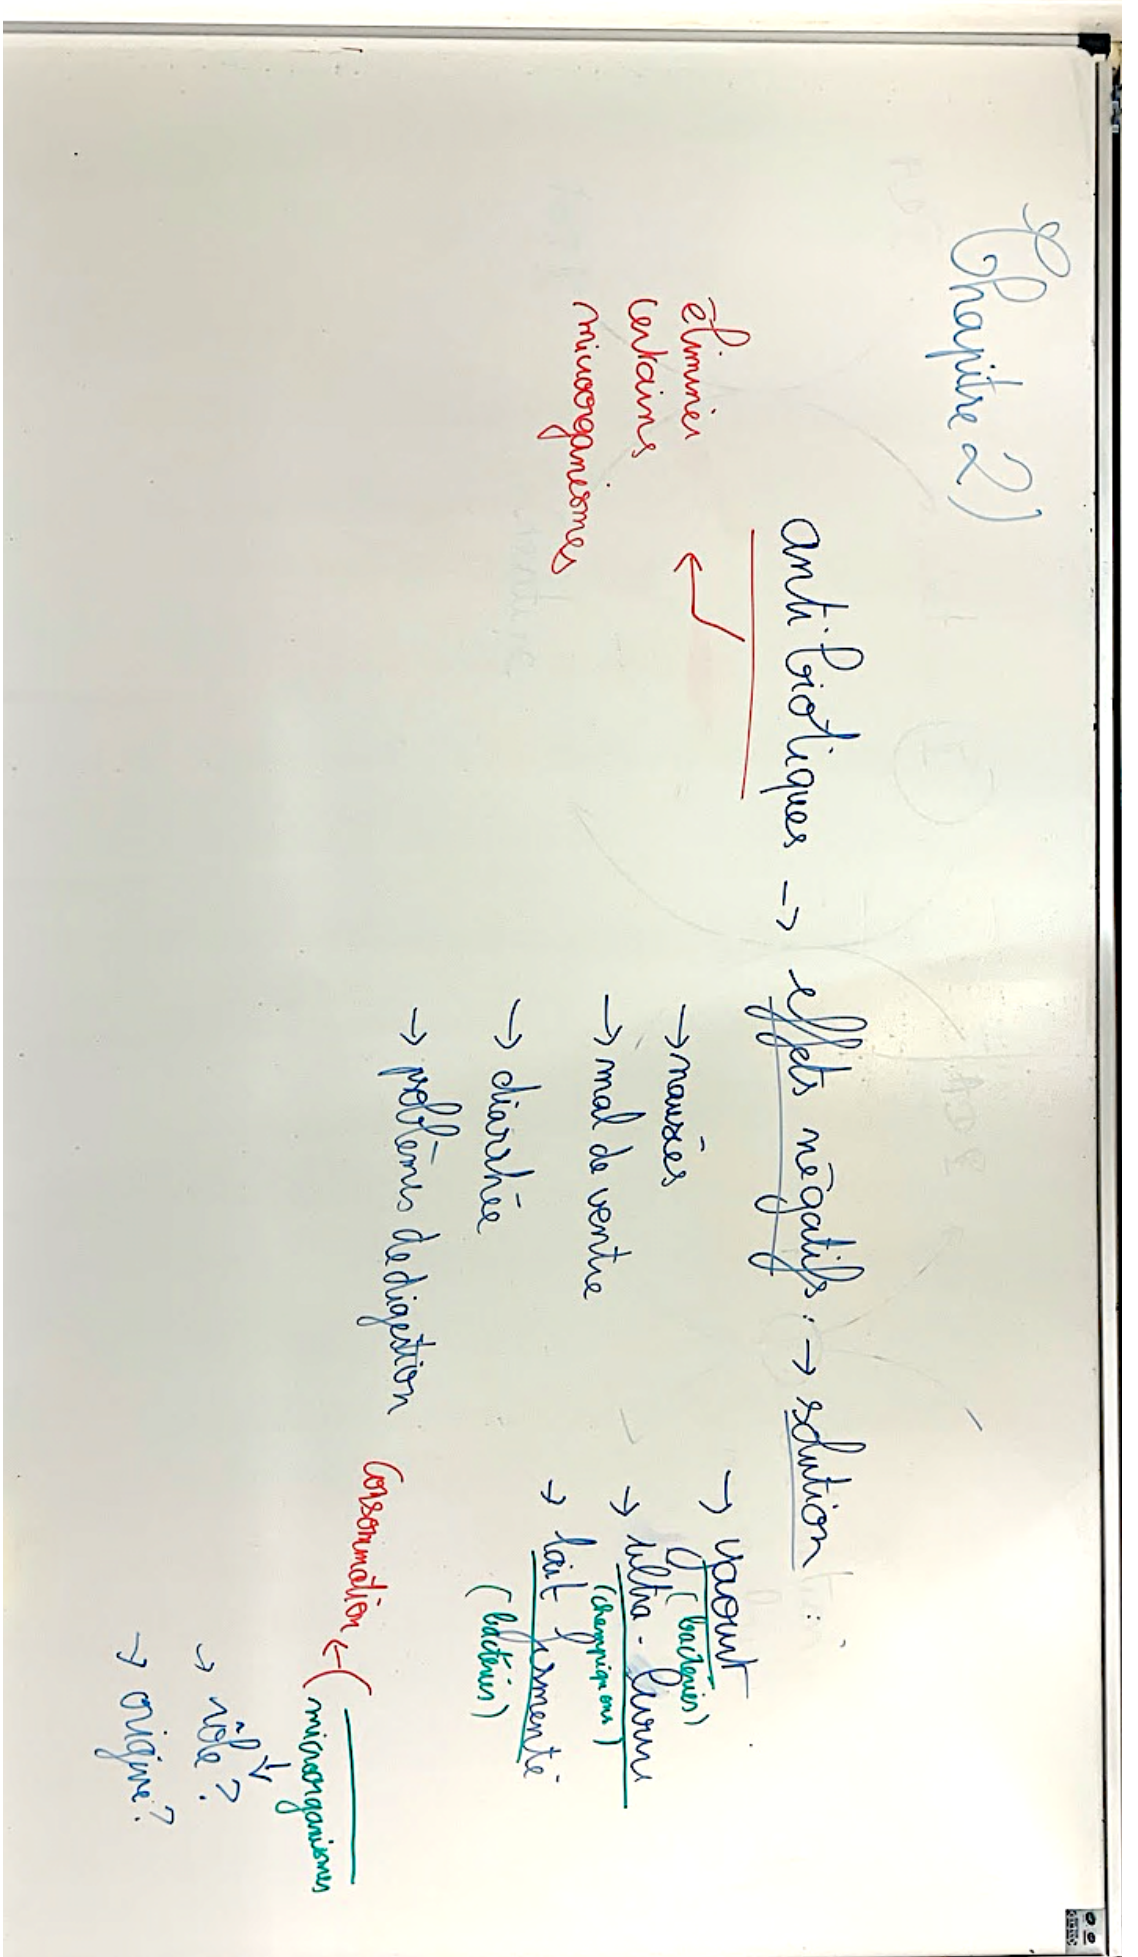 Chapitre 2)
antibiotiques -> effets négatifs : -> solution
éliminer
certains
microorganismes
-> nausées
-> mal de ventre
-> diarrhée
-> problèmes de digestion
-> yaourt
(bactéries)
-> ultra-levure
(champignons)
-> lait fermenté
(bactéries)
Consommation <- (microorganismes
-> rôle ?
-> origine ?